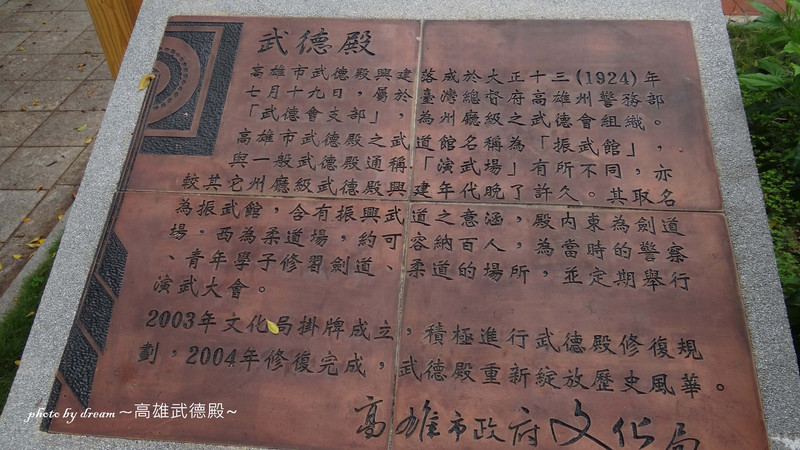 武德殿
高雄市武德殿興建落成於大正十三(1924)年
七月十九日，屬於臺灣總督府高雄州警務部
「武德會支部」，為州廳級之武德會組織。
高雄市武德殿之武道館名稱為「振武館」，
與一般武德殿通稱「演武場」有所不同，亦
較其它州廳級武德殿興建年代晚了許久。其取名
為振武館，含有振興武道之意涵，殿內東為劍道
場，西為柔道場，約可容納百人，為當時的警察
、青年學子修習劍道、柔道的場所，並定期舉行
演武大會。
2003年文化局掛牌成立，積極進行武德殿修復規
劃，2004年修復完成，武德殿重新綻放歷史風華。
高雄市政府文化局
photo by dream ~高雄武德殿~